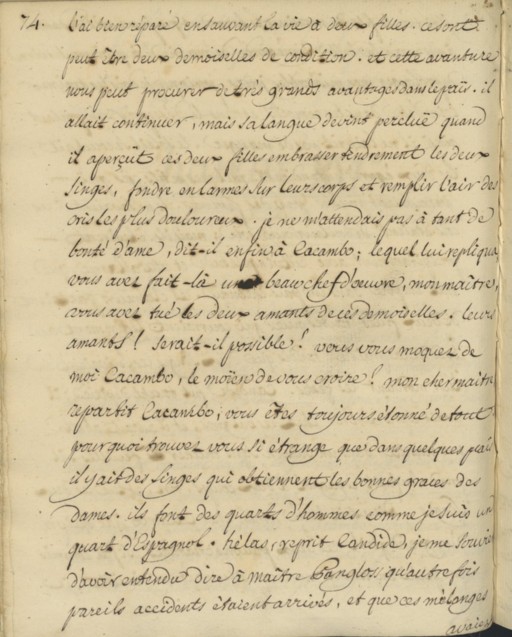 74. l'ai bien réparé en sauvant la vie a deux filles. ce sont
peut être deux demoiselles de condition. et cette avanture
nous peut procurer de très grands avantages dans le païs. il
allait continuer, mais sa langue devint percluë quand
il aperçut ces deux filles embrasser tendrement les deux
singes, fondre en larmes sur leurs corps et remplir l'air des
cris les plus douloureux. je ne m'attendais pas à tant de
bonté d'ame, dit-il enfin à Cacambo; lequel lui repliqua
vous avez fait-là un beau chef d'oeuvre, mon maître,
vous avez tué les deux amants de ces demoiselles. leurs
amants! serait-il possible! vous vous moquez de
moi Cacambo, le moïen de vous croire! mon cher maitre
repartit Cacambo, vous êtes toujours étonné de tout
pourquoi trouvez vous si étrange que dans quelques païs
il y ait des singes qui obtiennent les bonnes graces des
dames. ils sont des quarts d'hommes comme je suis un
quart d'Espagnol. hélas, reprit Candide, je me souviens
d'avoir entendu dire à maître Pangloss qu'autrefois
pareils accidents étaient arrivés, et que ces mélanges
avaient